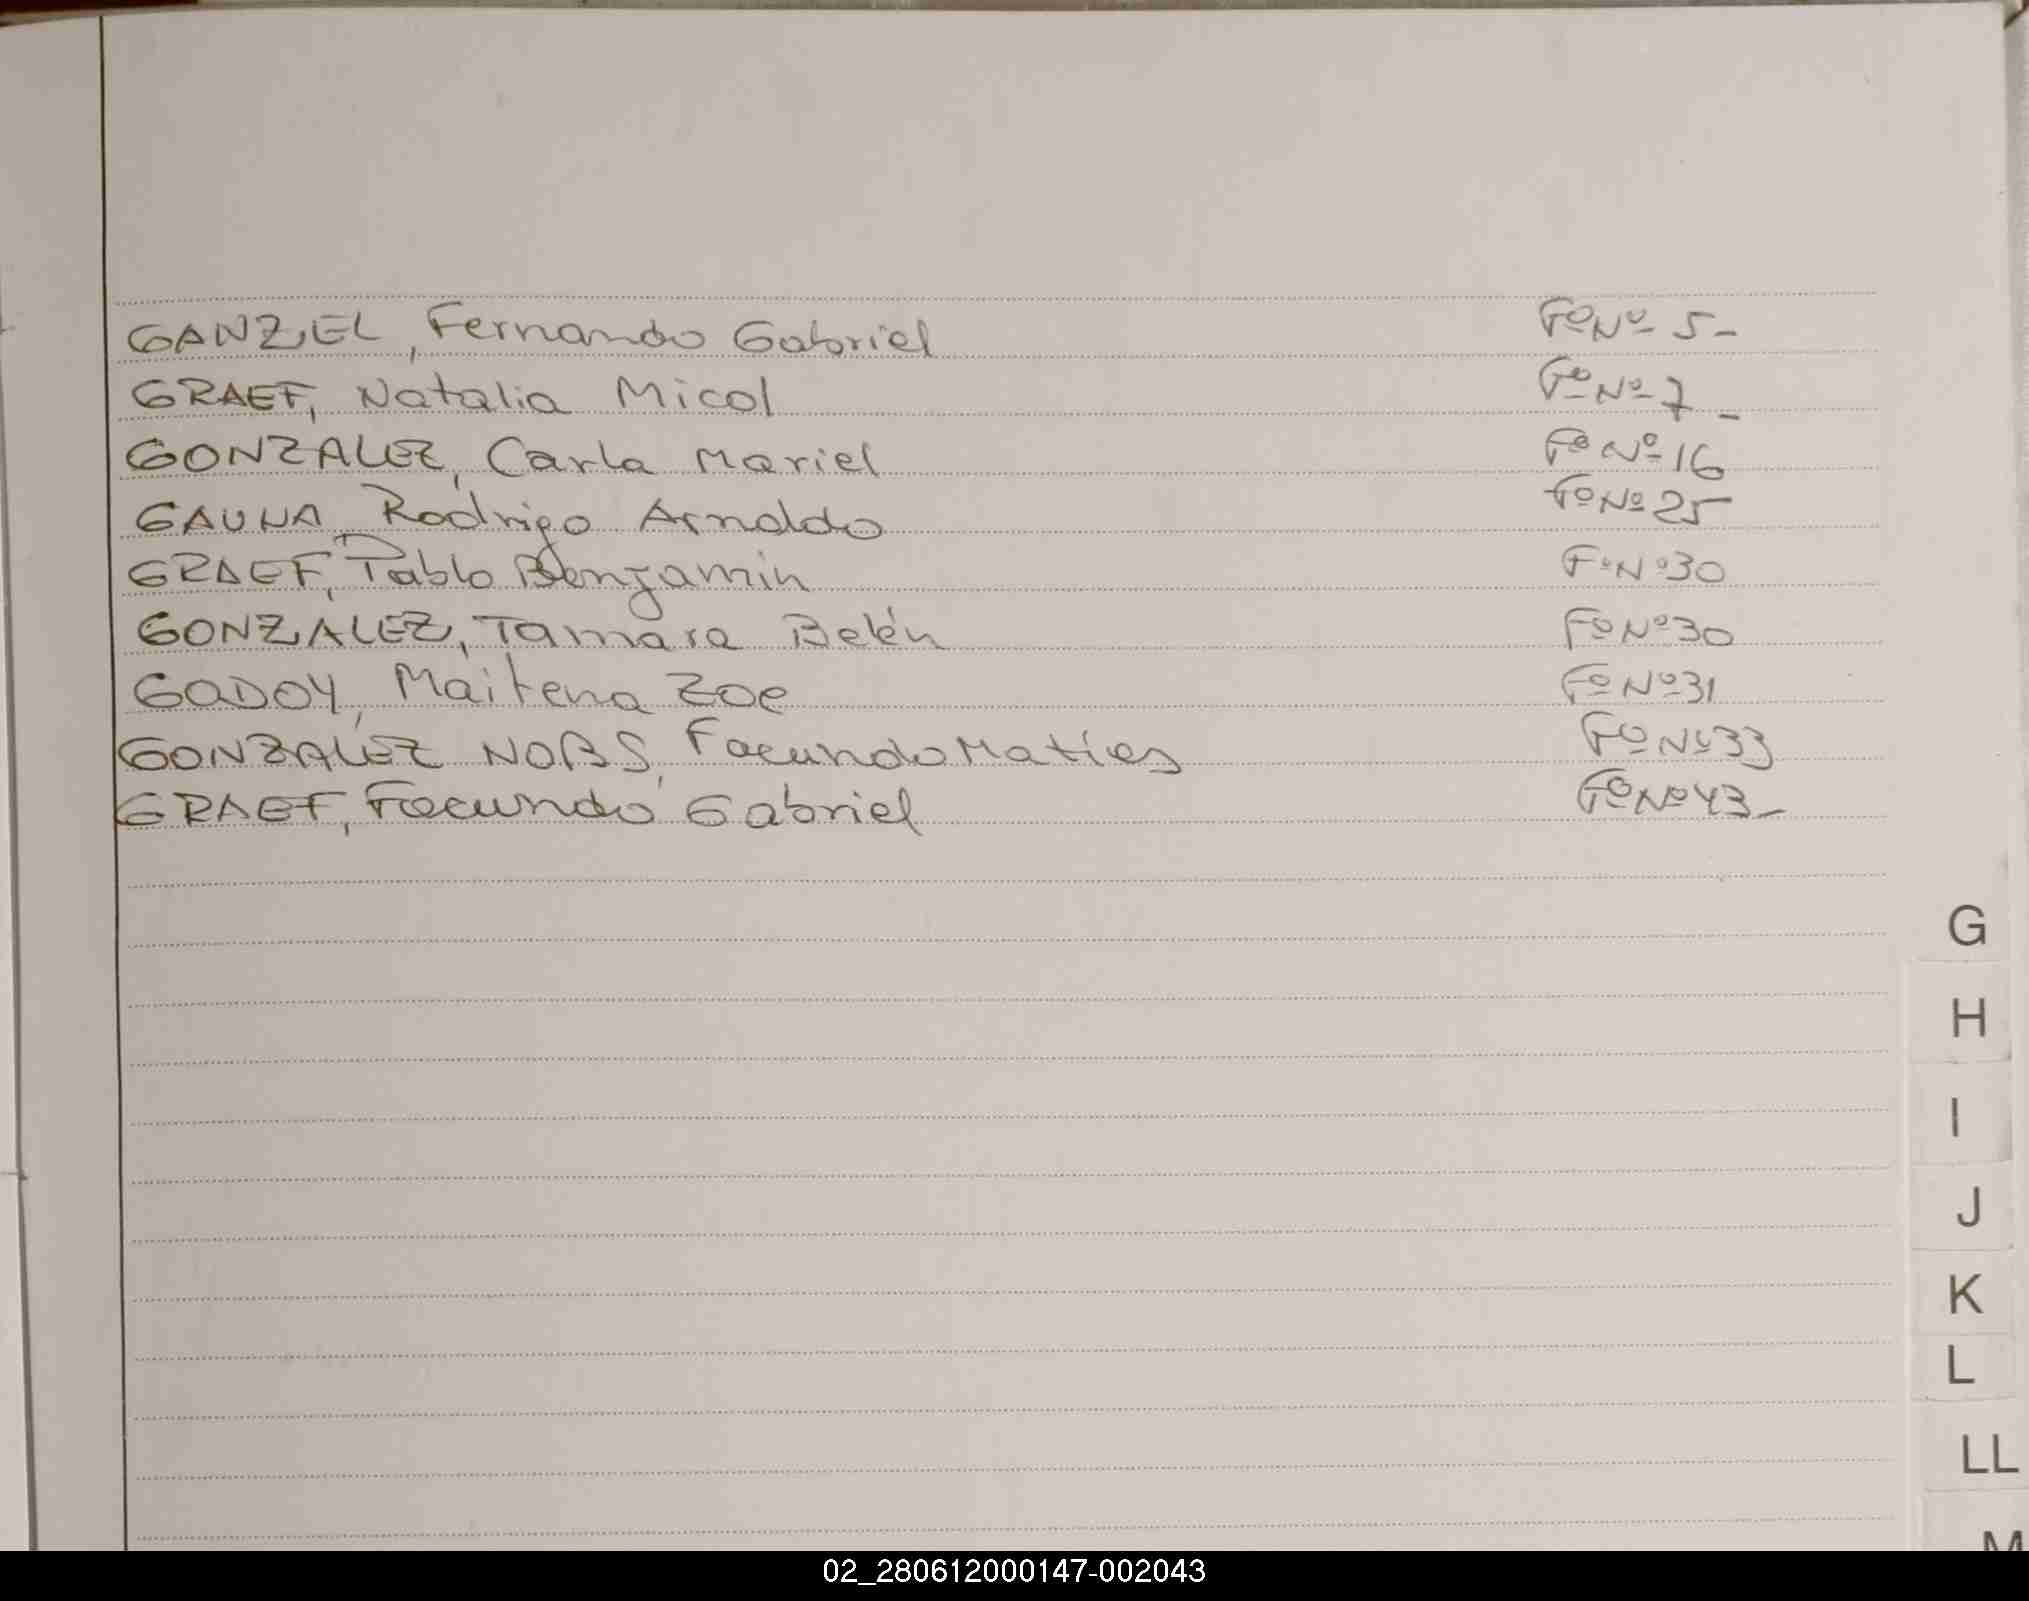 GANZEL, Fernando Gabriel Fº Nº 5-
GRAEF, Natalia Micol Fº Nº 7-
GONZALEZ, Carla Mariel Fº Nº 16
GAUNA, Rodrigo Arnaldo Fº Nº 25
GRAEF, Pablo Benjamin Fº Nº 30
GONZALEZ, Tamara Belén Fº Nº 30
GODOY, Maitena Zoe Fº Nº 31
GONZALEZ NOBS, Facundo Matías Fº Nº 33
GRAEF, Facundo Gabriel Fº Nº 43-
G
H
I
J
K
L
LL
M
02_280612000147-002043